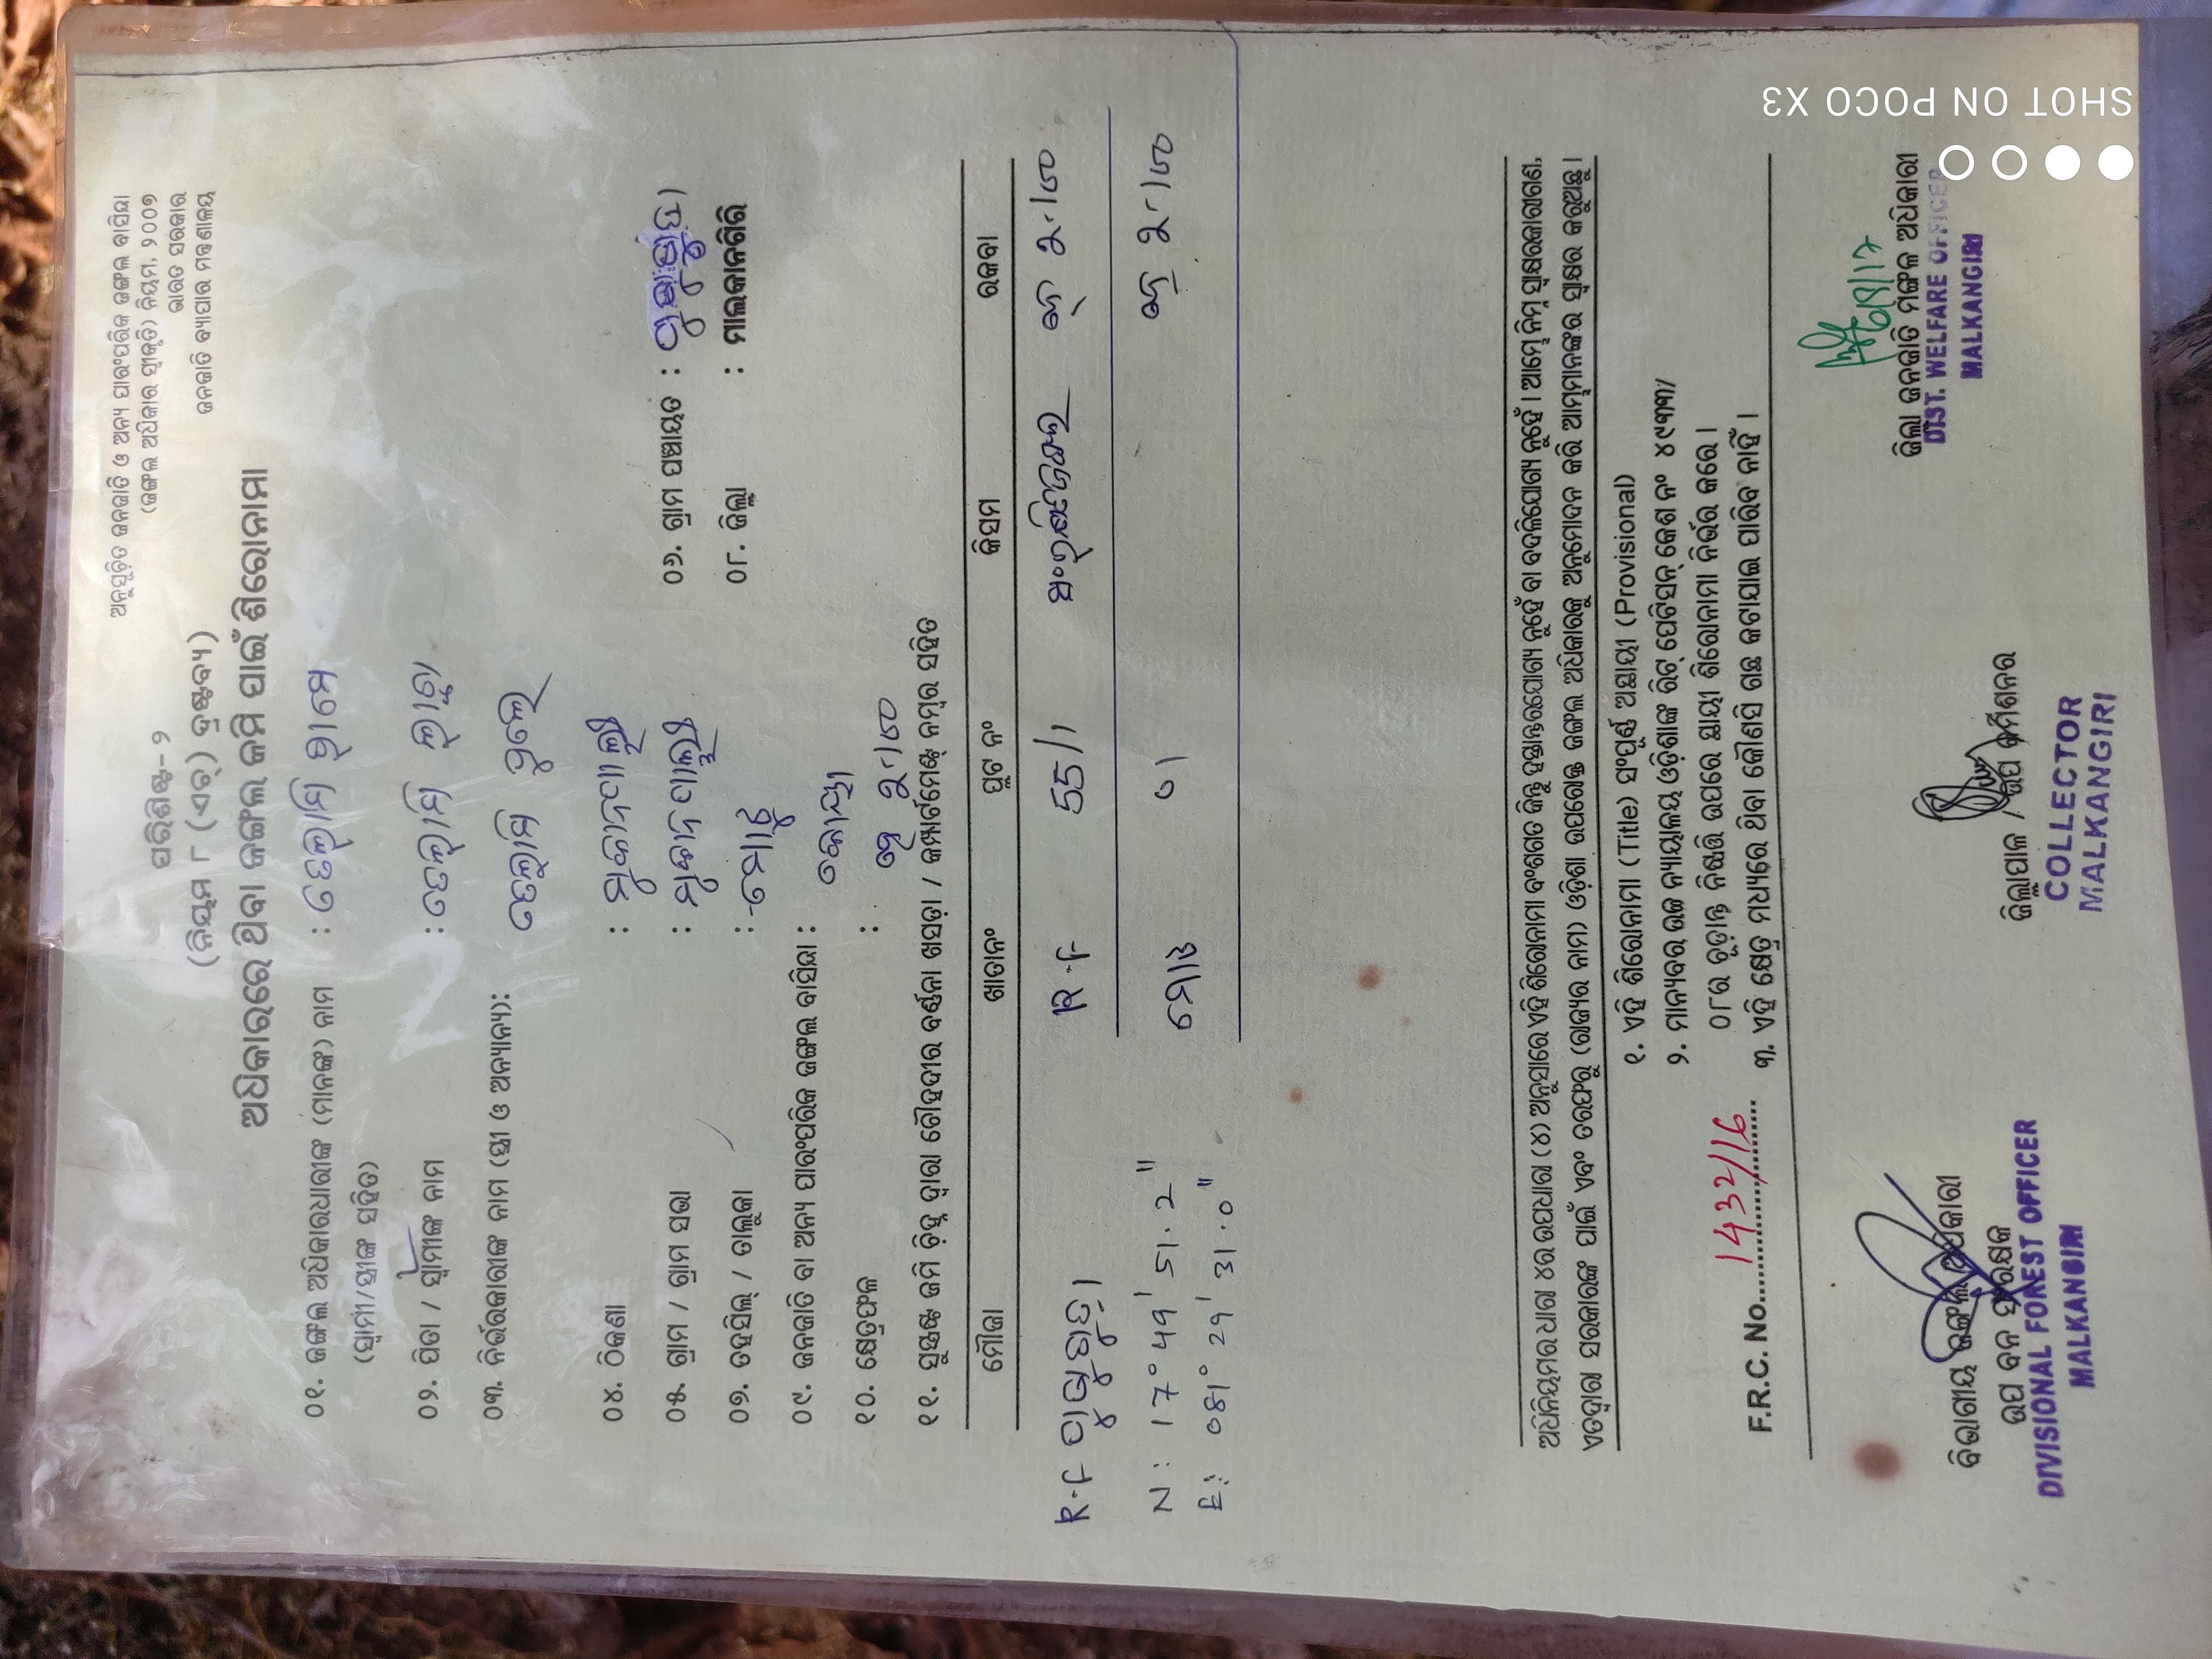 ଅନୁସୂଚିତ ଜନଜାତି ଓ ଅନ୍ୟ ପାରଂପରିକ ଜଙ୍ଗଲ ବାସିନ୍ଦା
(ଜଙ୍ଗଲ ଅଧିକାର ସ୍ୱୀକୃତି) ନିୟମ, ୨୦୦୭
ଭାରତ ସରକାର
ଜନଜାତି ବ୍ୟାପାର ମନ୍ତ୍ରଣାଳୟ
ପରିଶିଷ୍ଟ-୨
(ନିୟମ ୮ (ଏଚ୍) ଦ୍ରଷ୍ଟବ୍ୟ)
ଅଧିକାରରେ ଥିବା ଜଙ୍ଗଲ ଜମି ପାଇଁ ଶିରୋନାମା
୦୧. ଜଙ୍ଗଲ ଅଧିକାରଧାରୀଙ୍କ (ମାନଙ୍କ) ନାମ :
(ସ୍ୱାମୀ/ସ୍ତ୍ରୀଙ୍କ ସହିତ)
୦୨. ପିତା / ସ୍ୱାମୀଙ୍କ ନାମ :
୦୩. ନିର୍ଭରକାରୀଙ୍କ ନାମ (ସ୍ତ୍ରୀ ଓ ଅନ୍ୟାନ୍ୟ):
୦୪. ଠିକଣା :
୦୫. ଗ୍ରାମ / ଗ୍ରାମ ସଭା : ୦୬. ଗ୍ରାମ ପଞ୍ଚାୟତ :
୦୭. ତହସିଲ୍ / ତାଲୁକା : ୦୮. ଜିଲ୍ଲା : ମାଲକାନଗିରି
୦୯. ଜନଜାତି ବା ଅନ୍ୟ ପାରଂପରିକ ଜଙ୍ଗଲ ବାସିନ୍ଦା : କୋୟା
୧୦. କ୍ଷେତ୍ରଫଳ :
୧୧. ସୁସ୍ପଷ୍ଟ ଜମି ଚିହ୍ନ ଦ୍ୱାରା ଚୌହଦୀର ବର୍ଣ୍ଣନା ଖସଡ଼ା / କମ୍ପାର୍ଟମେଣ୍ଟ ନମ୍ବର ସହିତ
ମୌଜା ଖାତାନଂ ପ୍ଲଟ ନଂ କିସମ ରକବା
R.F R.F 55/1
N : 17° 49' 51.2"
E : 081° 29' 31.0" ମୋଟ ୦୧
ଅଧିନିୟମର ଧାରା ୪ର ଉପଧାରା (୪) ଅନୁସାରେ ଏହି ଶିରୋନାମା ବଂଶଗତ କିନ୍ତୁ ହସ୍ତାନ୍ତରଯୋଗ୍ୟ ନୁହେଁ ବା ବଦଳିଯୋଗ୍ୟ ନୁହେଁ । ଆମ୍ଭେ ନିମ୍ନ ସ୍ୱାକ୍ଷରକାରୀଗଣ,
ଏତଦ୍ୱାରା ସରକାରଙ୍କ ପାଇଁ ଏବଂ ତରଫରୁ (ରାଜ୍ୟର ନାମ) ଓଡ଼ିଶା ଉପରୋକ୍ତ ଜଙ୍ଗଲ ଅଧିକାରକୁ ଅନୁମୋଦନ କରି ଆମ୍ଭମାନଙ୍କର ସ୍ୱାକ୍ଷର କରୁଅଛୁ ।
୧. ଏହି ଶିରୋନାମା (Title) ସଂପୂର୍ଣ୍ଣ ଅସ୍ଥାୟୀ (Provisional)
୨. ମାନ୍ୟବର ଉଚ୍ଚ ନ୍ୟାୟାଳୟ ଓଡ଼ିଶାଙ୍କ ରିଟ୍ ପେଟିସନ୍ କେଶ ନଂ ୪୯୩୩/
୦୮ର ଚୂଡ଼ାନ୍ତ ନିଷ୍ପତ୍ତି ଉପରେ ସ୍ଥାୟୀ ଶିରୋନାମା ନିର୍ଭର କରେ ।
F.R.C. No. 1432/16 ୩. ଏହି କ୍ଷେତ୍ର ମଧ୍ୟରେ ଥିବା କୌଣସି ଗଛ କଟାଯାଇ ପାରିବ ନାହିଁ ।
ବିଭାଗୀୟ ଜଙ୍ଗଲ ଅଧିକାରୀ
ଉପ ବନ ସଂରକ୍ଷକ
DIVISIONAL FOREST OFFICER
MALKANGIRI
ଜିଲ୍ଲାପାଳ / ଉପ କମିଶନର
COLLECTOR
MALKANGIRI
ଜିଲ୍ଲା ଜନଜାତି ମଙ୍ଗଳ ଅଧିକାରୀ
DIST. WELFARE OFFICER
MALKANGIRI
SHOT ON POCO X3